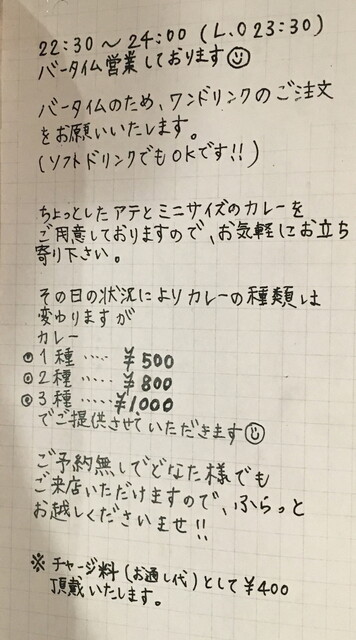 22:30～24:00（L.O 23:30）
バータイム営業しております☺
バータイムのため、ワンドリンクのご注文
をお願いいたします。
（ソフトドリンクでもOKです!!）
ちょっとしたアテとミニサイズのカレーを
ご用意しておりますので、お気軽にお立ち
寄り下さい。
その日の状況によりカレーの種類は
変わりますが
カレー
①1種‥‥‥¥500
②2種‥‥‥¥800
③3種‥‥‥¥1,000
でご提供させていただきます☺
ご予約無しでどなた様でも
ご来店いただけますので、ふらっと
お越しくださいませ!!
※チャージ料（お通し代）として¥400
頂戴いたします。